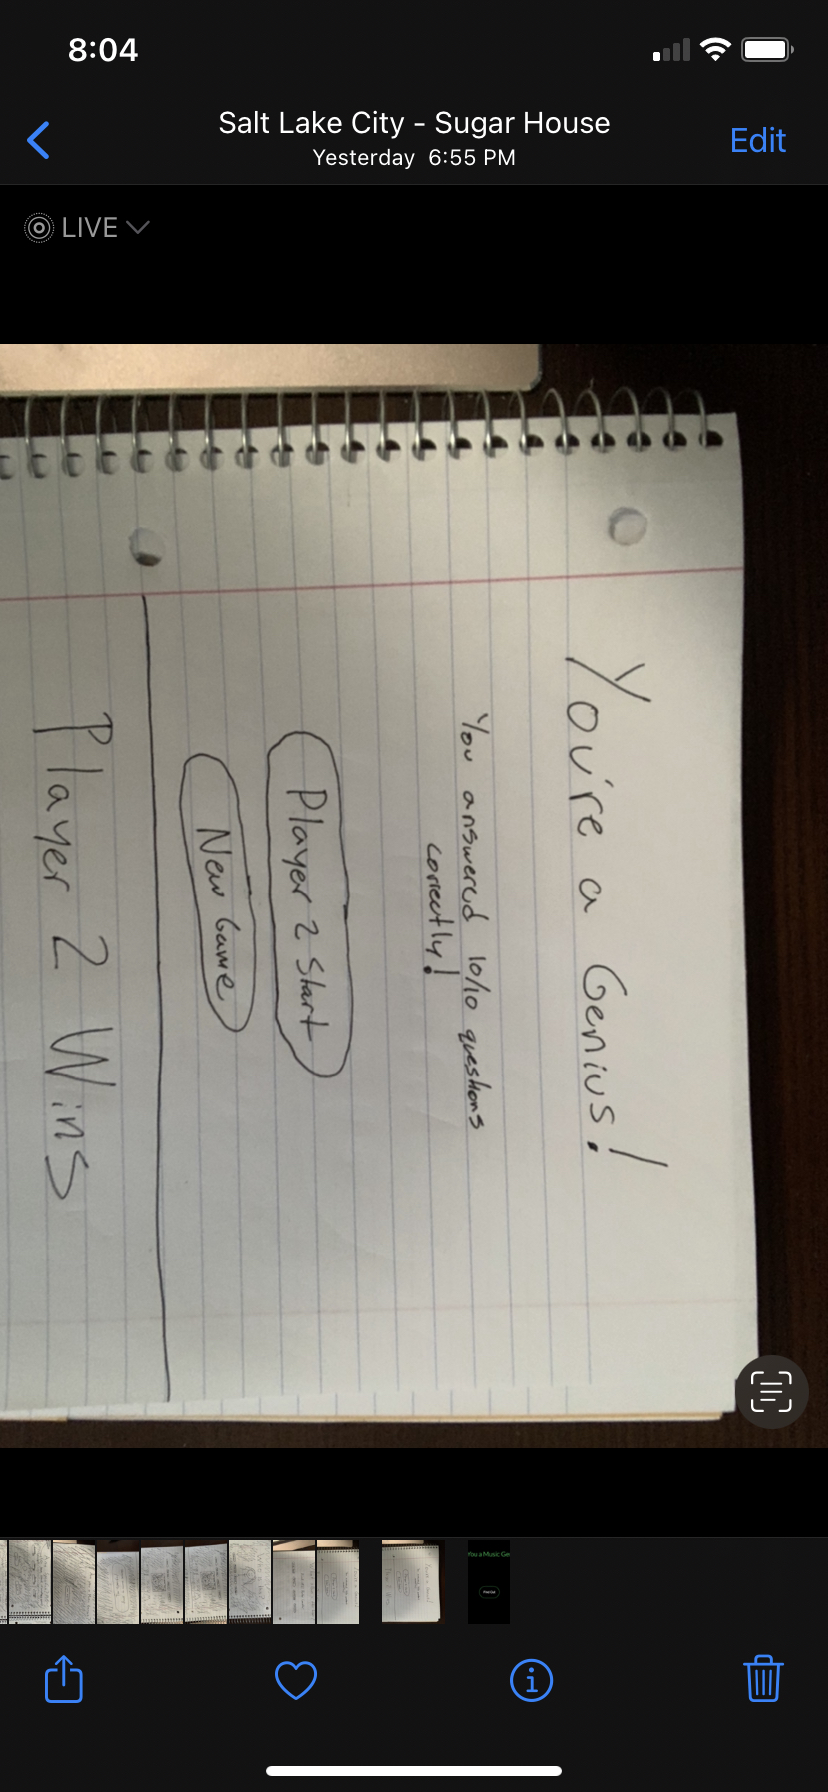 8:04
Salt Lake City - Sugar House
Yesterday 6:55 PM
Edit
LIVE
You're a Genius!
You answered 10/10 questions
correctly!
Player 2 Start
New Game
Player 2 Wins